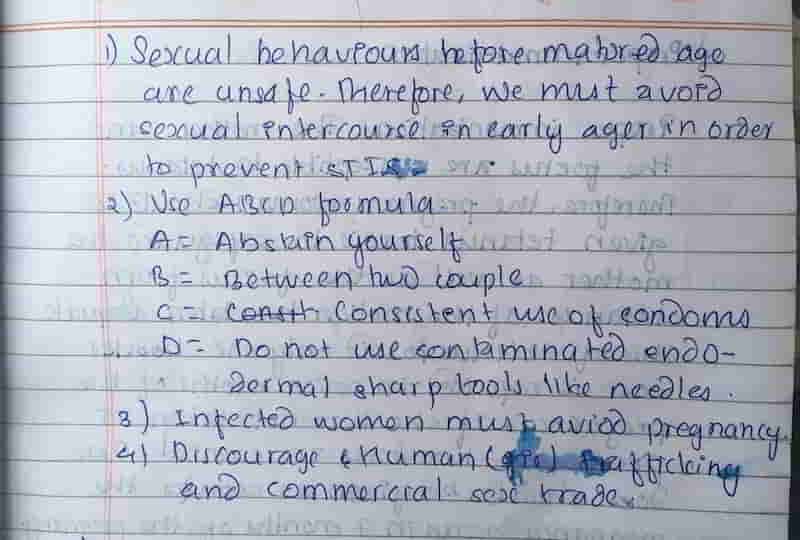 1) Sexual behaviours before matored age
are unsafe. Therefore, we must avoid
sexual intercourse in early ager in order
to prevent STIs
2) Use ABCD formula
A = Abstain yourself
B = Between two couple
C = Consth Consistent use of condoms
D = Do not use contaminated endo-
dermal sharp tools like needles.
3) Infected women must aviod pregnancy.
4) Discourage & human (girl) trafficking
and commercial sex trade.